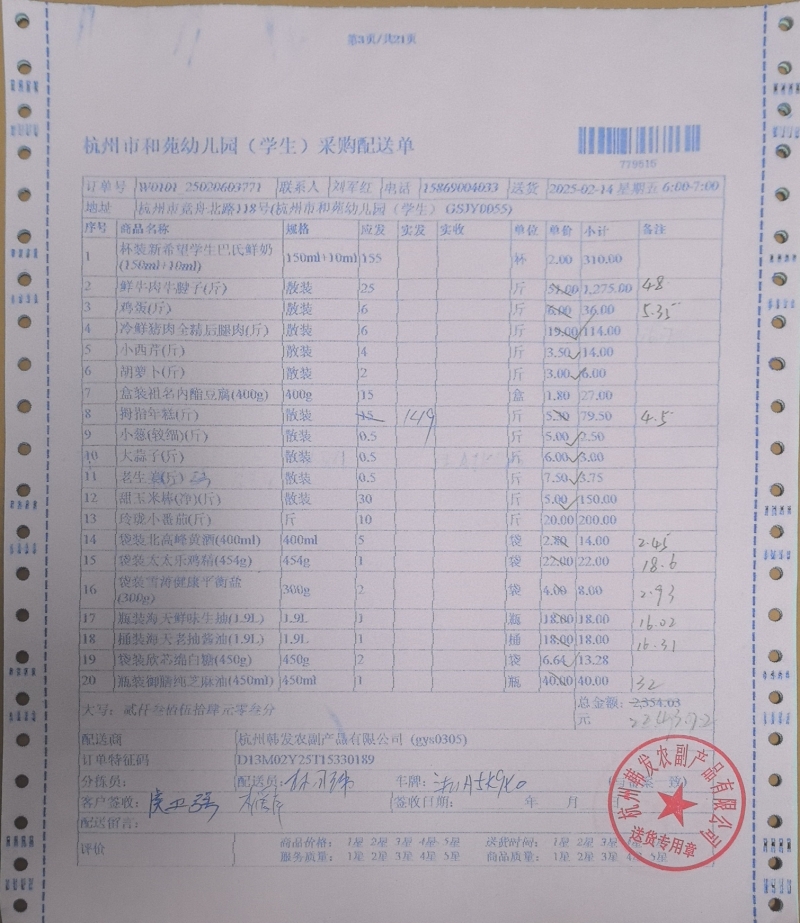 第3页/共21页
杭州市和苑幼儿园（学生）采购配送单
779516
订单号 W0101 25020603771 联系人 刘军红 电话 15869004033 送货 2025-02-14 星期五 6:00-7:00
地址 杭州市竞舟北路118号(杭州市和苑幼儿园（学生）GSJY0055)
序号 商品名称 规格 应发 实发 实收 单位 单价 小计 备注
1 杯装新希望学生巴氏鲜奶(150ml+10ml) 150ml+10ml 155 杯 2.00 310.00
2 鲜牛肉牛腱子(斤) 散装 25 斤 51.00 1,275.00 48
3 鸡蛋(斤) 散装 6 斤 6.00 36.00 5.35
4 冷鲜猪肉全精后腿肉(斤) 散装 6 斤 19.00 114.00
5 小西芹(斤) 散装 4 斤 3.50 14.00
6 胡萝卜(斤) 散装 2 斤 3.00 6.00
7 盒装祖名内酯豆腐(400g) 400g 15 盒 1.80 27.00
8 拇指年糕(斤) 散装 15 149 斤 5.30 79.50 4.5
9 小葱(较细)(斤) 散装 0.5 斤 5.00 2.50
10 大蒜子(斤) 散装 0.5 斤 6.00 3.00
11 老生姜(斤) 散装 0.5 斤 7.50 3.75
12 甜玉米棒(净)(斤) 散装 30 斤 5.00 150.00
13 玲珑小番茄(斤) 斤 10 斤 20.00 200.00
14 袋装北高峰黄酒(400ml) 400ml 5 袋 2.80 14.00 2.45
15 袋装太太乐鸡精(454g) 454g 1 袋 22.00 22.00 18.6
16 袋装雪涛健康平衡盐(300g) 300g 2 袋 4.00 8.00 2.93
17 瓶装海天鲜味生抽(1.9L) 1.9L 1 瓶 18.00 18.00 16.02
18 桶装海天老抽酱油(1.9L) 1.9L 1 桶 18.00 18.00 16.31
19 袋装欣芯绵白糖(450g) 450g 2 袋 6.64 13.28
20 瓶装御膳纯芝麻油(450ml) 450ml 1 瓶 40.00 40.00 32
大写：贰仟叁拾伍拾肆元零叁分 总金额: 2,354.03
元
配送商 杭州韩发农副产品有限公司 (gys0305)
订单特征码 D13M02Y25T15330189
分拣员: 配送员: 车牌:
客户签收: 签收日期: 年 月
配送留言:
评价 商品价格: 1星 2星 3星 4星 5星 送货时间: 1星 2星 3星
服务质量: 1星 2星 3星 4星 5星 商品质量: 1星 2星 3星 4星 5星
杭州韩发农副产品有限公司
送货专用章